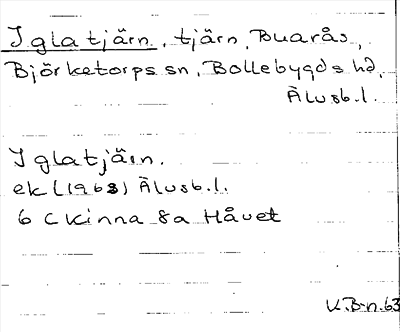 Iglatjärn, tjärn, Buarås,
Björketorps sn, Bollebygds hd,
Älvsb.l.
Iglatjärn.
ek (1968) Älvsb.l.
6 C Kinna 8a Håvet
V.B-n.63